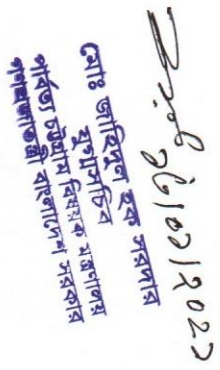 ২৬/০১/২০২১
মোঃ জাহিদুল হক সরদার
যুগ্মসচিব
পার্বত্য চট্টগ্রাম বিষয়ক মন্ত্রণালয়
গণপ্রজাতন্ত্রী বাংলাদেশ সরকার